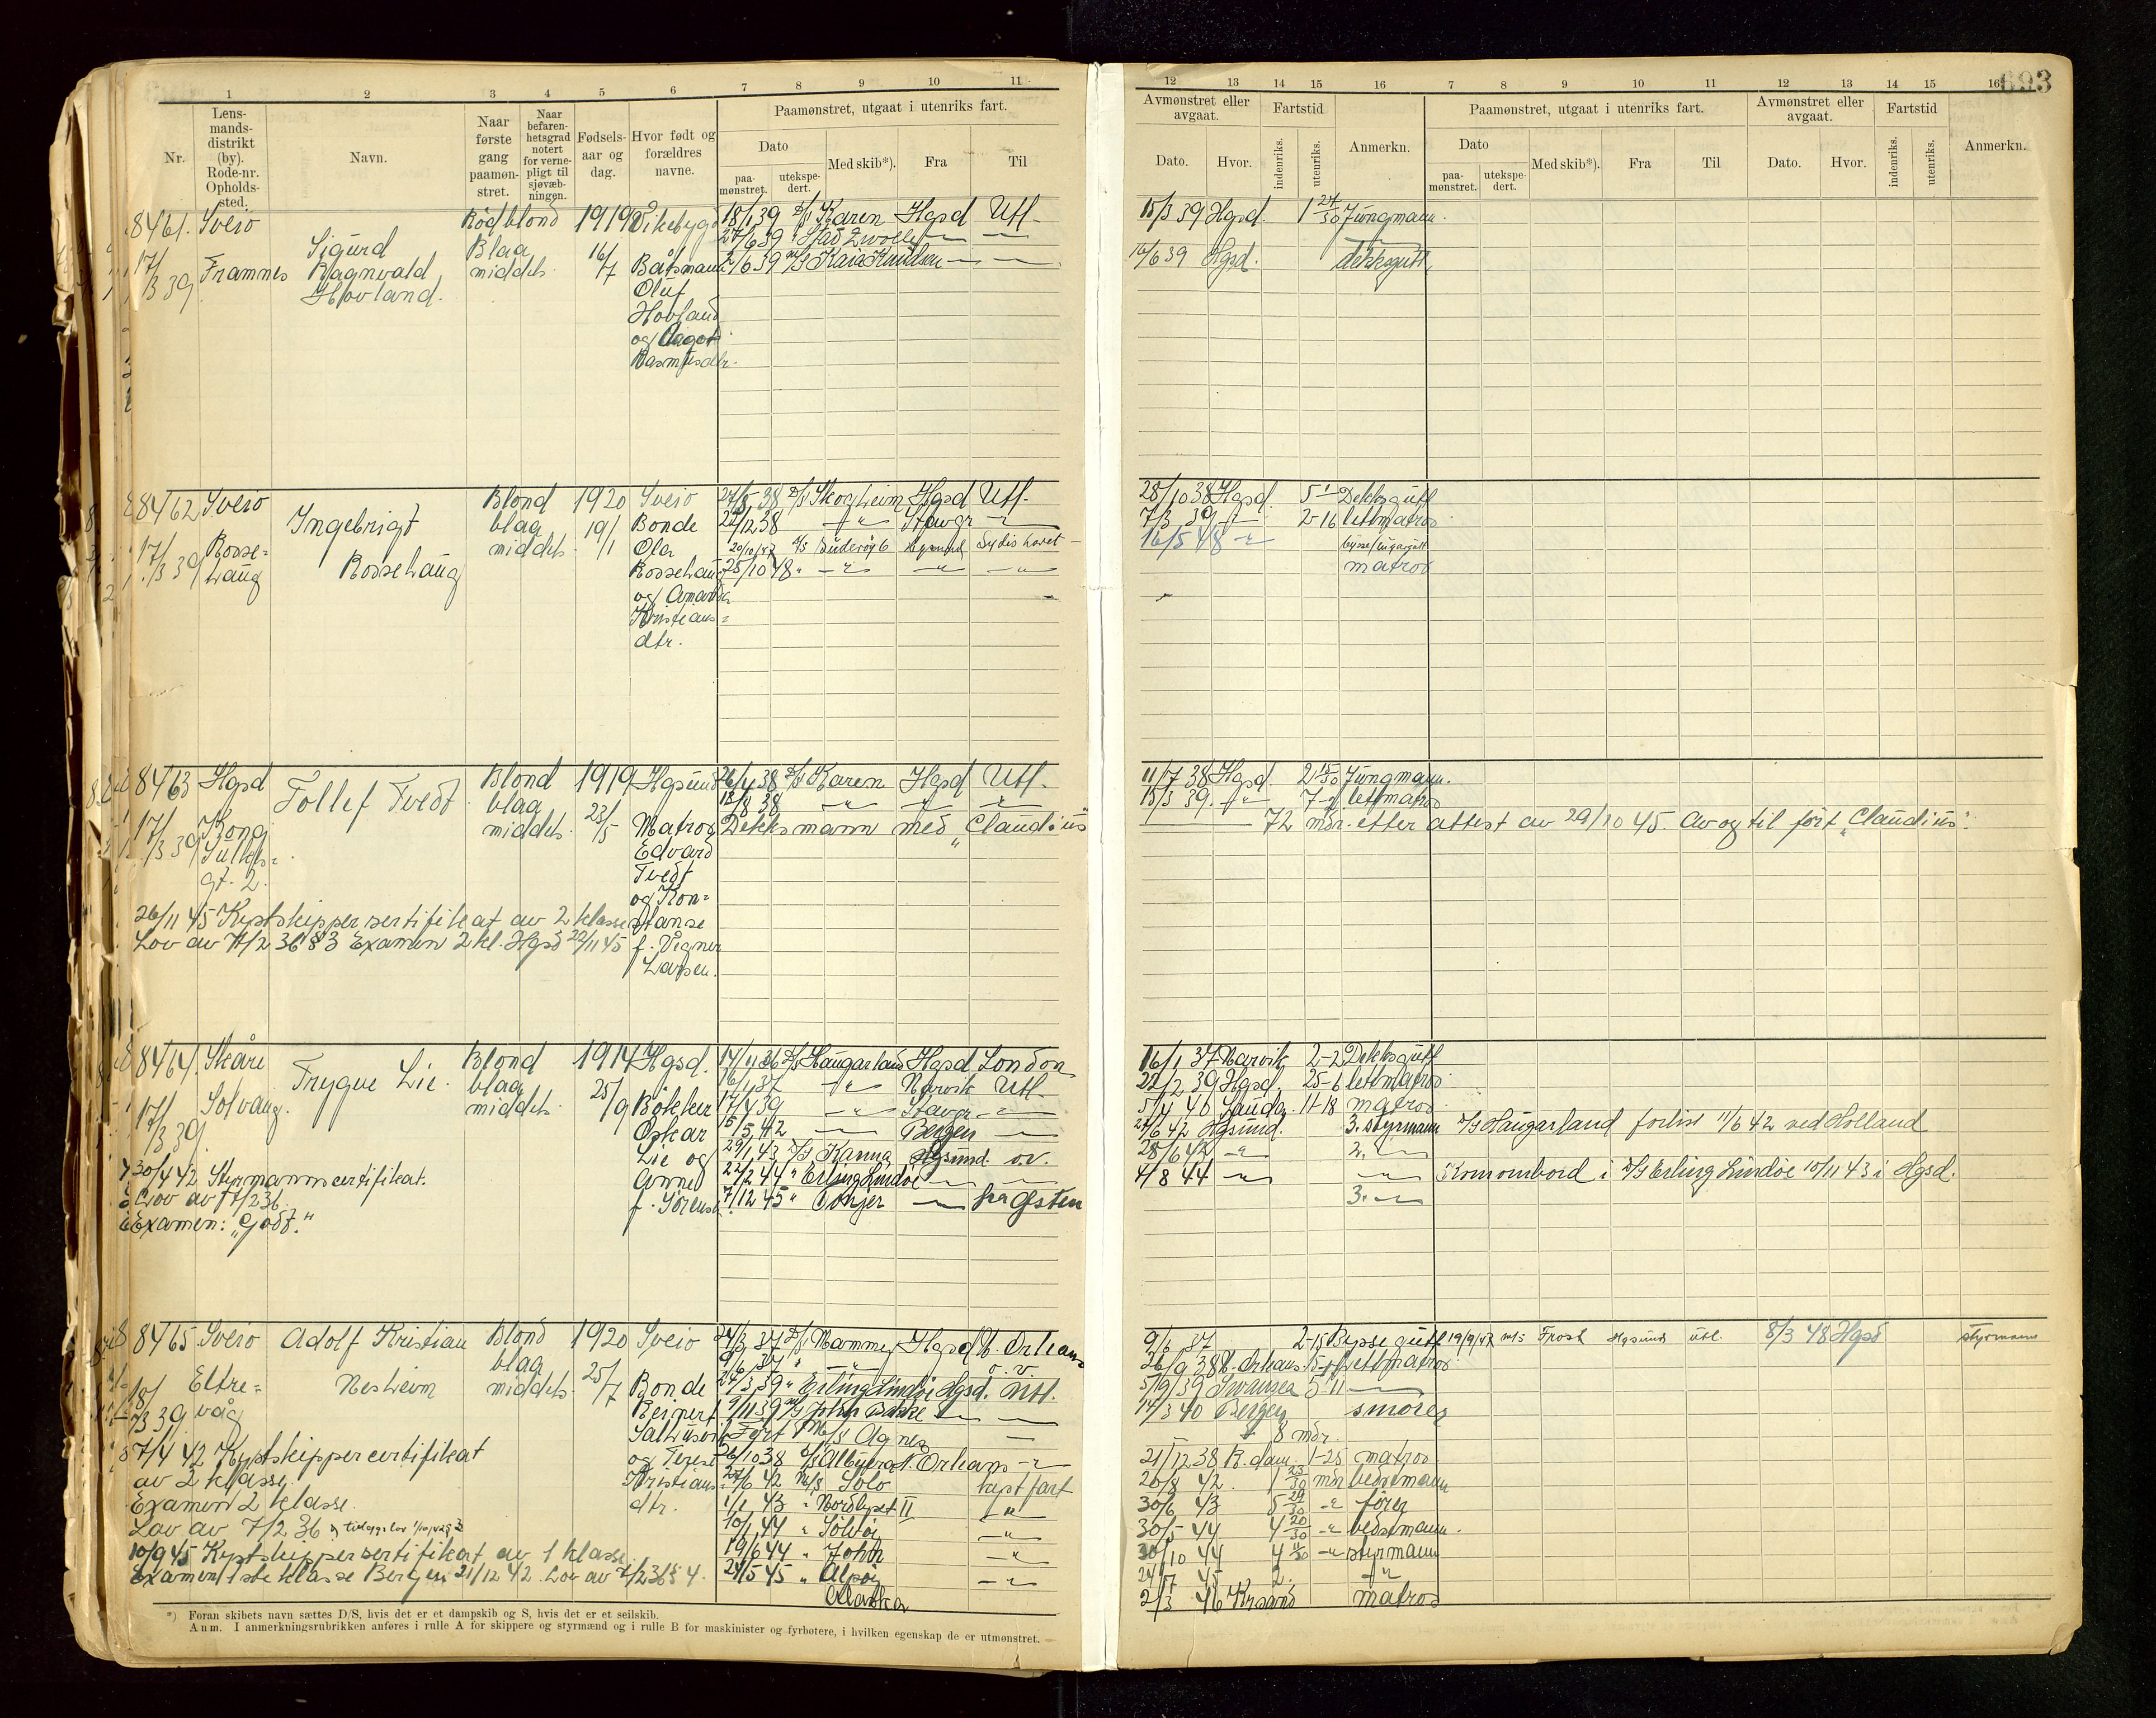 693
1 2 3 4 5 6 7 8 9 10 11
Nr.
Lens-
mands-
distrikt
(by).
Rode-nr.
Opholds-
sted.
Navn.
Naar
første
gang
paamøn-
stret.
Naar
befaren-
hetsgrad
notert
for verne-
pligt til
sjøvæb-
ningen.
Fødsels-
aar og
dag.
Hvor født og
forældres
navne.
Paamønstret, utgaat i utenriks fart.
Dato
paa-
mønstret.
utekspe-
dert.
Med skib*).
Fra
Til
12 13 14 15 16 7 8 9 10 11 12 13 14 15 16
Avmønstret eller
avgaat.
Dato. Hvor.
Fartstid
indenriks.
utenriks.
Anmerkn.
Paamønstret, utgaat i utenriks fart.
Dato
paa-
mønstret.
utekspe-
dert.
Med skib*).
Fra
Til
Avmønstret eller
avgaat.
Dato. Hvor.
Fartstid
indenriks.
utenriks.
Anmerkn.
8461. Sveio
17/3 39 Framnes
Sigurd
Ragnvald
Hovland.
Rødblond
Blaa
middels
1919
16/7
Vikebygd
Båtsmann
Oluf
Hovland
og Aagot
Rasmusdtr.
18/1 39 D/S Karen Hgsd Utl.
27/6 39 " Stad Zwolle — —
2/6 39 M/S Kaia Knudsen — —
15/3 39 Hgsd. 1 27/30 Jungmann.
16/6 39 Hgsd. dekksgutt
8462 Sveio
17/3 39 Rosse-
haug
Ingebrigt
Rossehaug
Blond
blaa
middels
1920
19/1
Sveio
Bonde
Ola
Rossehaug
og Amanda
Kristians-
dtr.
27/5 38 D/S Skogheim Hgsd Utl.
27/12 38 — " — Stavgr — " —
20/10 47 D/S Suderøy 6 Hgsund Sydishavet
25/10 48 " — " — — " — — " —
28/10 38 Hgsd. 5-1 Dekksgutt
7/3 39 — " — 2-16 lettmatros
16/5 48 — " — bysse/lugargutt
matros
8463 Hgsd
17/3 39 Kong
Sulles-
gt. 2.
Tollef Tvedt
Blond
blaa
middels
1919
23/5
Hgsund
Matros
Edvard
Tvedt
og Kon-
stanse
f. Vigner
Larsen.
26/4 38 D/S Karen Hgsd Utl.
18/8 38 — " — — " — — " —
Dekksmann med "Claudius"
11/7 38 Hgsd. 2 15/30 Jungmann.
15/3 39. — " — lettmatros
— 72 mdr. etter attest av 29/10 45. Av og til ført "Claudius".
26/11 45 Kystskippersertifikat av 2 klasse
Lov av 7/2 36 § 3 Examen 2 kl. Hgsd 20/11 45
8464. Skåre
17/3 39 Solvang.
Trygve Lie.
Blond
blaa
middels
1914
25/9
Hgsd.
Bøkker
Oskar
Lie og
Anne
f. Sørensen
14/11 36 D/S Haugarland Hgsd London
16/1 37 — " — Narvik Utl.
17/4 39 — " — Stavgr — " —
15/5 42 — Bergen —
29/1 43 D/S Kanna Hgsund o.v.
22/2 44 " Erling Lindøe — —
7/12 45 " Ornjer — fra Østen
16/1 37 Narvik 2-2 Dekksgutt
22/2 39 Hgsd. 25-6 lettmatros
5/4 40 Sauda. 11-18 matros
27/6 42 Hgsund. 3. styrmann D/S Haugarland forlist 11/6 42 ved Holland
28/6 42 — " — 2. —
4/8 44 — " — — " — Kom ombord i D/S Erling Lindøe 10/11 43 i Hgsd.
3. —
30/4 42 Styrmannscertifikat.
Lov av 7/2 36.
Examen: "Godt."
8465 Sveio
18/3 39 Eltre-
våg
Adolf Kristian
Nesheim
Blond
blaa
middels
1920
25/7
Sveio
Bonde
Reinert
Salhusen
og Terese
Kristians-
dtr.
24/3 37 D/S Mammy Hgsd N. Orleans
9/6 37 " — " — o. v.
24/3 39 " Erling Lindøe Hgsd. Utl.
9/11 39 M/S John Bakke — —
Fort M/S Agnes —
26/10 38 D/S Albuera N. Orleans — " —
27/6 42 M/S Solo kyst fart
1/1 43 " Nordlyset II — " —
10/1 44 " Sølvøi — " —
19/6 44 " John — " —
24/5 45 " Alsøi — " —
Alaska
9/6 37 2-15 Bysse gutt 19/9/47 M/S Frost Hgsund utl. 8/3 48 Hgsd styrmann
26/9 38 N. Orleans. lettmatros
5/9 39 Swansea 5-11 —
14/3 40 Bergen smører
8 mdr.
21/12 38 R.dam. 1-25 matros
20/8 42. 1 23/30 mdr bestmann
30/6 43 5 29/30 — " — fører
30/5 44 4 20/30 — " — bestmann.
30/10 44 4 11/30 — " — styrmann
24/7 45 2. — " —
2/3 46 Krsand matros
7/4 42 Kystskippercertifikat
av 2 klasse.
Examen 2 klasse.
Lov av 7/2 36
10/9 45 Kystskippersertifikat av 1 klasse
Examen 1ste klasse Bergen 21/12 42. Lov av 7/2 36 § 4.
*) Foran skibets navn sættes D/S, hvis det er et dampskib og S, hvis det er et seilskib.
Anm. I anmerkningsrubrikken anføres i rulle A for skippere og styrmænd og i rulle B for maskinister og fyrbøtere, i hvilken egenskap de er utmønstret.